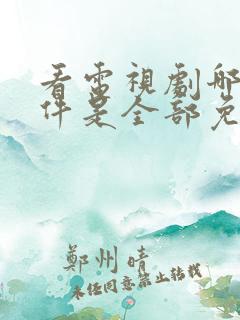 看電視劇哪
件是全部免
鄭州晴
未经同意禁止转载